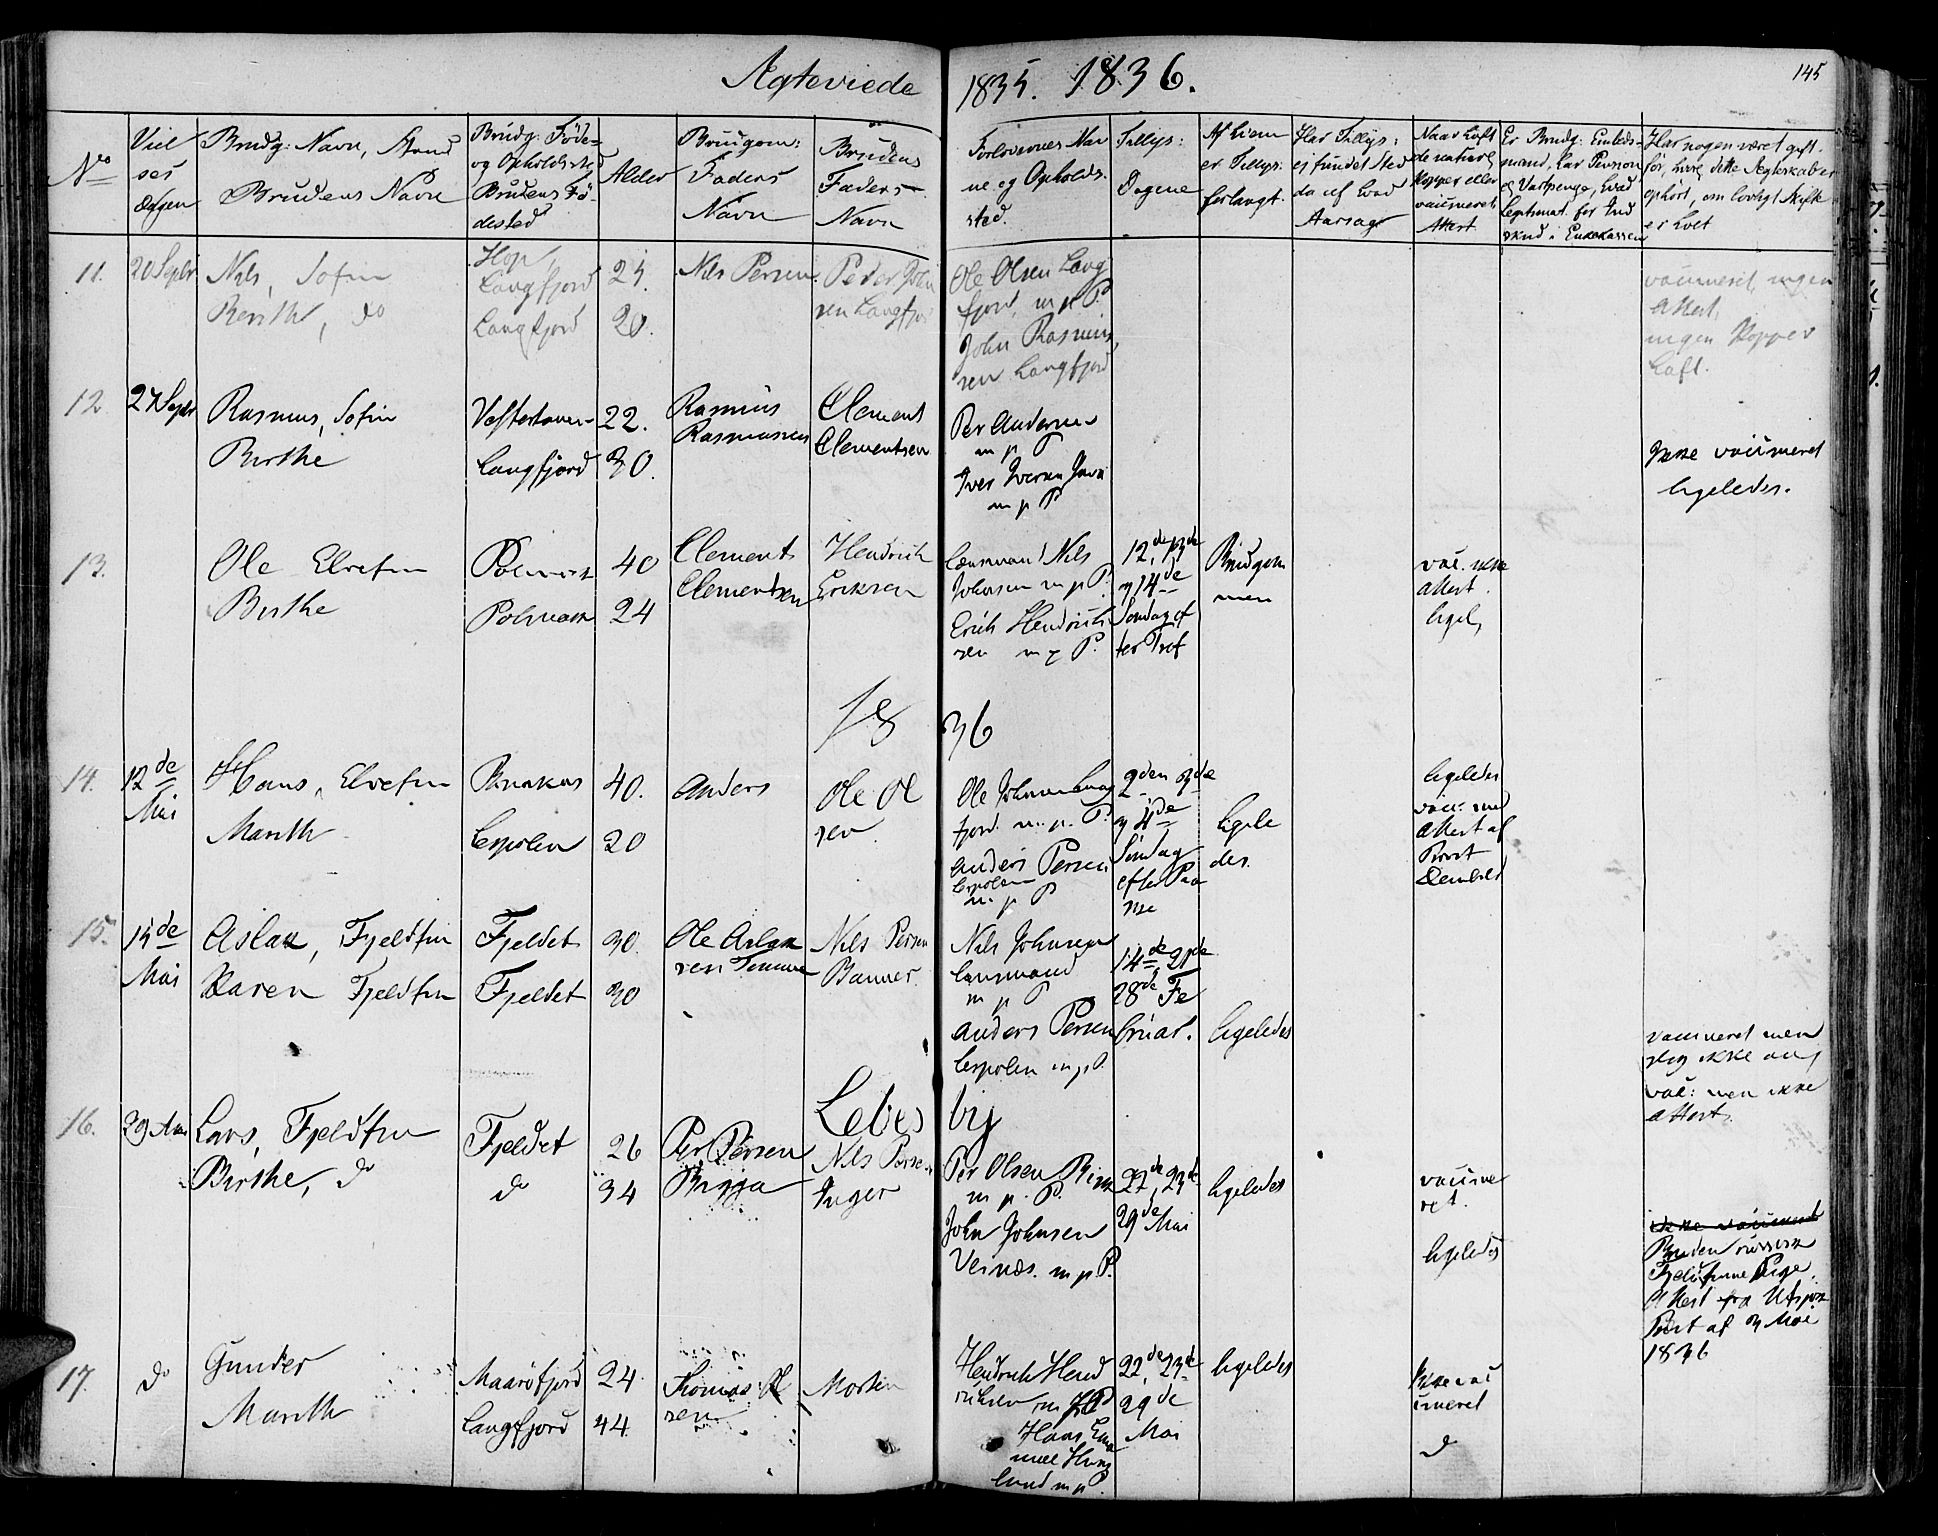 Ægteviede 1835. 1836.
145
No
Viel
ses
Dagen
Brudg: Navn, Stand
Brudens Navn
Brudg: Føde-
og Opholdssted
Brudens Fø-
dested
Alder
Brudgom:
Faders
Navn
Brudens
Faders
Navn
Forlovernes Nav
ne og Opholds-
sted.
Tillys:
Dagene
Af hvem
er Tillys:
forlangt.
Har Tillys:
ej fundet sted
da af hvad
Aarsag
Naar havt
de naturl
Kopper eller
vaccineret
Attest
Er Brudg: Enleds-
mand, har Pension
og Vartpenge, hvad
Legitimat. for Ind
skud i Enkekassen
Har nogen været gift
før, hvor dette Ægteskab er
ophørt, om lovligt Skifte
er holt
11.
20 Septr
Nils, Sofin
Berith, do
Hop,
Langfjord
Langfjord
25.
20.
Nils Persen
Peder John
sen Langfjor
Ole Olsen Lang
fjord, m p P.
John Rasmus
sen Langfjord
vaccineret, ingen
Attest,
ingen Kopper
haft.
12
27 Septr
Rasmus, Sofin
Birthe
Vestertanen
Langfjord
22.
30.
Rasmus
Rasmussen
Clement
Clementsen
Per Andersen
m p P
Iver Iversen
m p P
Ikke vaccineret
ligeledes.
13.
Ole Elvefin
Birthe
Polmak
Polmak
40
24
Clement
Clementsen
Hendrich
Eriksen
Lænsmand Nils
Johnsen m p P.
Erich Hendrich
sen m p P.
12de, 13de
og 14de
Søndag ef
ter Tref
Brudgom
men
vac. ikke
attest.
ligel,
1836
14.
12de
Mai
Hans, Elvefin
Marith
40.
20
Anders
Ole Ol
sen.
Ole Johnsen Lang
fjord. m. p. P.
Anders Persen
m. p P
2den 3die
og 4de
Søndag
efter Paa
ske
ligele
des.
ligeledes
vacc: med
Attest af
Provst
Deinbold
15.
15de
Mai
Aslak, Fjeldfin
Karen Fjeldfin
Fjeldet
Fjeldet
30.
30
Ole Aslak
sen
Nils Persen
Banner.
Nils Johnsen
Lænsmand
m p P
Anders Persen
m p P.
14de, 21de
28de Fe
bruar.
ligeledes
vaccineret men
dog ikke
vac: men ikke
attest.
Lebesby
16.
29 Mai
Lars, Fjeldfin
Birthe, do
Fjeldet
do
26
34
Per Persen
Bigga
Nils Persen
Inger
Per Olsen
m p. P.
John Johnsen
Veinæs. m p P.
22de, 23de
29de Mai
ligeledes
vaccine
ret.
ligeledes
ikke vaccineret
Bruden russisk
Fjeldfinne Pige,
Attest fra Utsjok
Præst af 3 Mai
1836
17.
do
Gunder
Marith
Maarøfjord
Langfjord
24
44
Thomas Ol
sen
Morten
Hendrich Hend
richsen m p P
Hans Ema
nuel
lund m p P.
22de, 23de
29de
Mai
ligeledes
Ikke vac
cineret
do